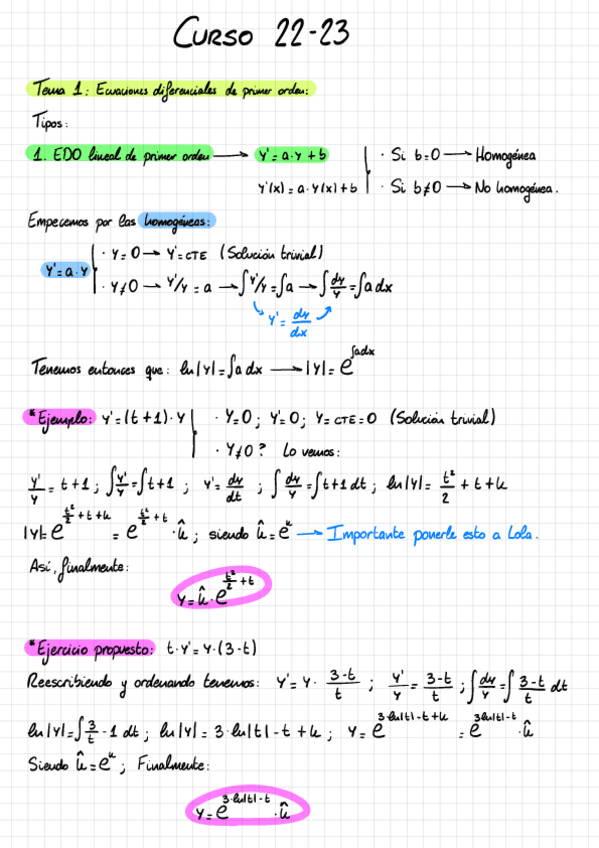 CURSO 22-23
Tema 1: Ecuaciones diferenciales de primer orden:
Tipos:
1. EDO lineal de primer orden → y' = a·y + b | · Si b=0 → Homogénea
y'(x) = a·y(x) + b | · Si b≠0 → No homogénea.
Empecemos por las homogéneas:
y' = a·y
· y=0 → y'=CTE (Solución trivial)
· y≠0 → y'/y = a → ∫y'/y = ∫a → ∫dy/y = ∫a dx
y' = dy/dx
Tenemos entonces que: ln|y| = ∫a dx → |y| = e^(∫adx)
*Ejemplo: y' = (t+1)·y | · y=0; y'=0; y=CTE=0 (Solución trivial)
· y≠0? Lo vemos:
y'/y = t+1; ∫y'/y = ∫t+1; y' = dy/dt; ∫dy/y = ∫t+1 dt; ln|y| = t²/2 + t + k
|y| = e^(t²/2+t+k) = e^(t²/2+t)·û; siendo û = e^k → Importante ponerle esto a Lola.
Así, finalmente:
y = û·e^(t²/2+t)
*Ejercicio propuesto: t·y' = y·(3-t)
Reescribiendo y ordenando tenemos: y' = y·(3-t)/t; y'/y = (3-t)/t; ∫dy/y = ∫(3-t)/t dt
ln|y| = ∫3/t - 1 dt; ln|y| = 3·ln|t| - t + k; y = e^(3·ln|t|-t+k) = e^(3ln|t|-t)·û
Siendo û = e^k; Finalmente:
y = e^(3·ln|t|-t)·û